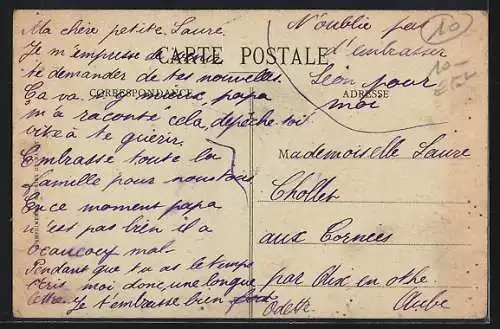 Ma chère petite Laure
Je m'empresse de venir
te demander de tes nouvelles
Ça va y mieux, papa
m'a raconté cela, dépêche-toi
vite à te guérir.
Embrasse toute la
famille pour nous tous
En ce moment papa
n'est pas bien il a
beaucoup mal.
Pendant que tu as le temps
écris moi donc, une longue
lettre. Je t'embrasse bien fort
Odette
CARTE POSTALE
CORRESPONDANCE
ADRESSE
N'oublie pas
d'embrasser
Léon pour
moi
10
10-
Mademoiselle Laure
Chollet
aux Cornées
par Aix en othe
Aube